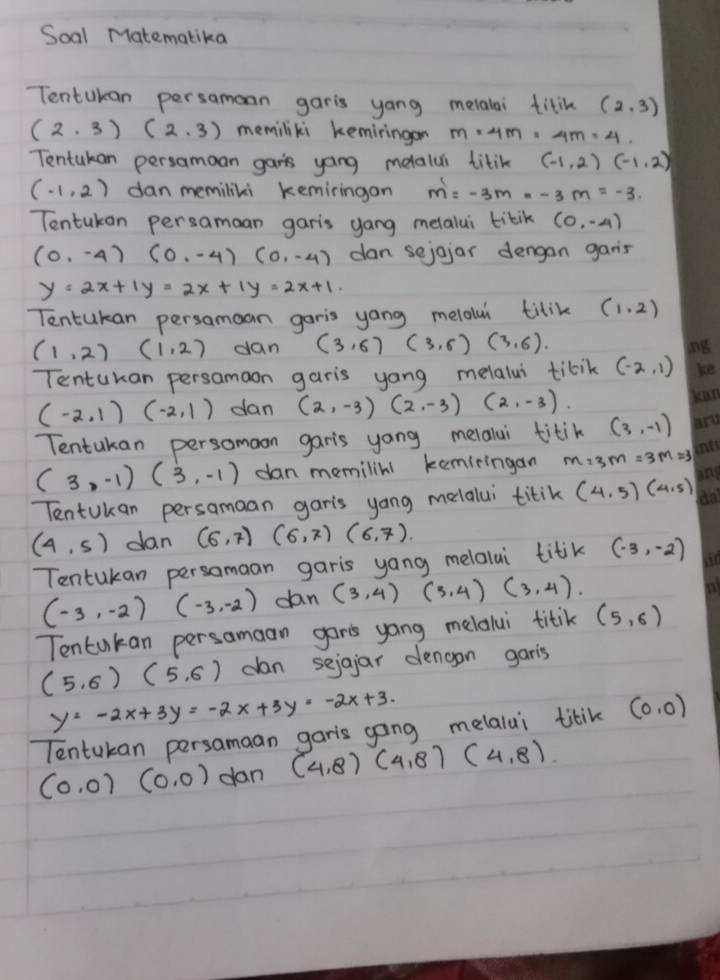 Soal Matematika
Tentukan persamaan garis yang melalui titik (2.3)
(2.3) (2.3) memiliki kemiringan m = 4m = 4m = 4.
Tentukan persamaan garis yang melalui titik (-1,2) (-1,2)
(-1,2) dan memiliki kemiringan m = -3m = -3m = -3.
Tentukan persamaan garis yang melalui titik (0,-4)
(0,-4) (0,-4) (0,-4) dan sejajar dengan garis
y = 2x+1y = 2x+1y = 2x+1.
Tentukan persamaan garis yang melalui titik (1.2)
(1,2) (1,2) dan (3,6) (3,6) (3,6).
Tentukan persamaan garis yang melalui titik (-2,1)
(-2,1) (-2,1) dan (2,-3) (2,-3) (2,-3).
Tentukan persamaan garis yang melalui titik (3,-1)
(3,-1) (3,-1) dan memiliki kemiringan m=3m=3m=3
Tentukan persamaan garis yang melalui titik (4,5) (4,5)
(4,5) dan (6,7) (6,7) (6,7).
Tentukan persamaan garis yang melalui titik (-3,-2)
(-3,-2) (-3,-2) dan (3,4) (3,4) (3,4).
Tentukan persamaan garis yang melalui titik (5,6)
(5,6) (5,6) dan sejajar dengan garis
y = -2x+3y = -2x+3y = -2x+3.
Tentukan persamaan garis yang melalui titik (0,0)
(0,0) (0,0) dan (4,8) (4,8) (4,8).